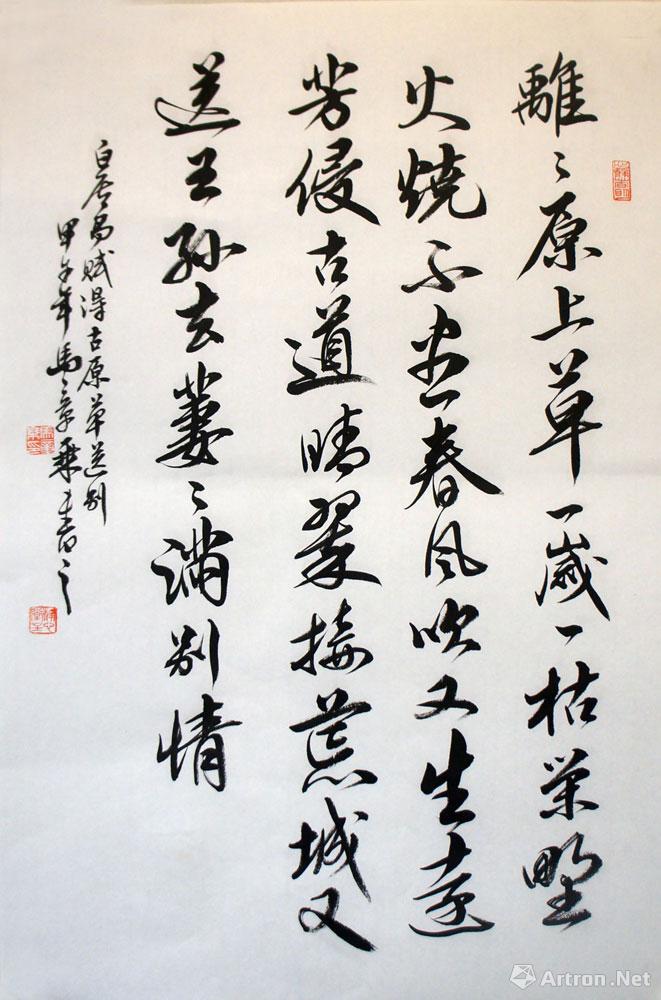 離〻原上草一歲一枯榮野
火燒不盡春風吹又生遠
芳侵古道晴翠接荒城又
送王孫去萋〻滿別情
白居易賦得古原草送別
甲午年馬〻章乘書
Artron.Net